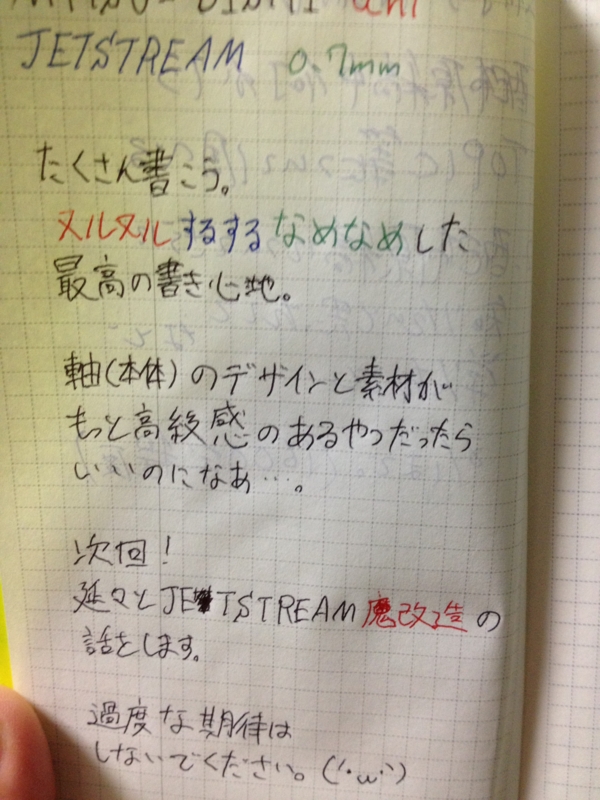 MITSU-BISHI uni
JETSTREAM 0.7mm
たくさん書こう。
ヌルヌルするするなめなめした
最高の書き心地。
軸(本体)のデザインと素材が
もっと高級感のあるやつだったら
いいのになあ…。
次回!
延々とJETSTREAM魔改造の
話をします。
過度な期待は
しないでください。(´・ω・`)